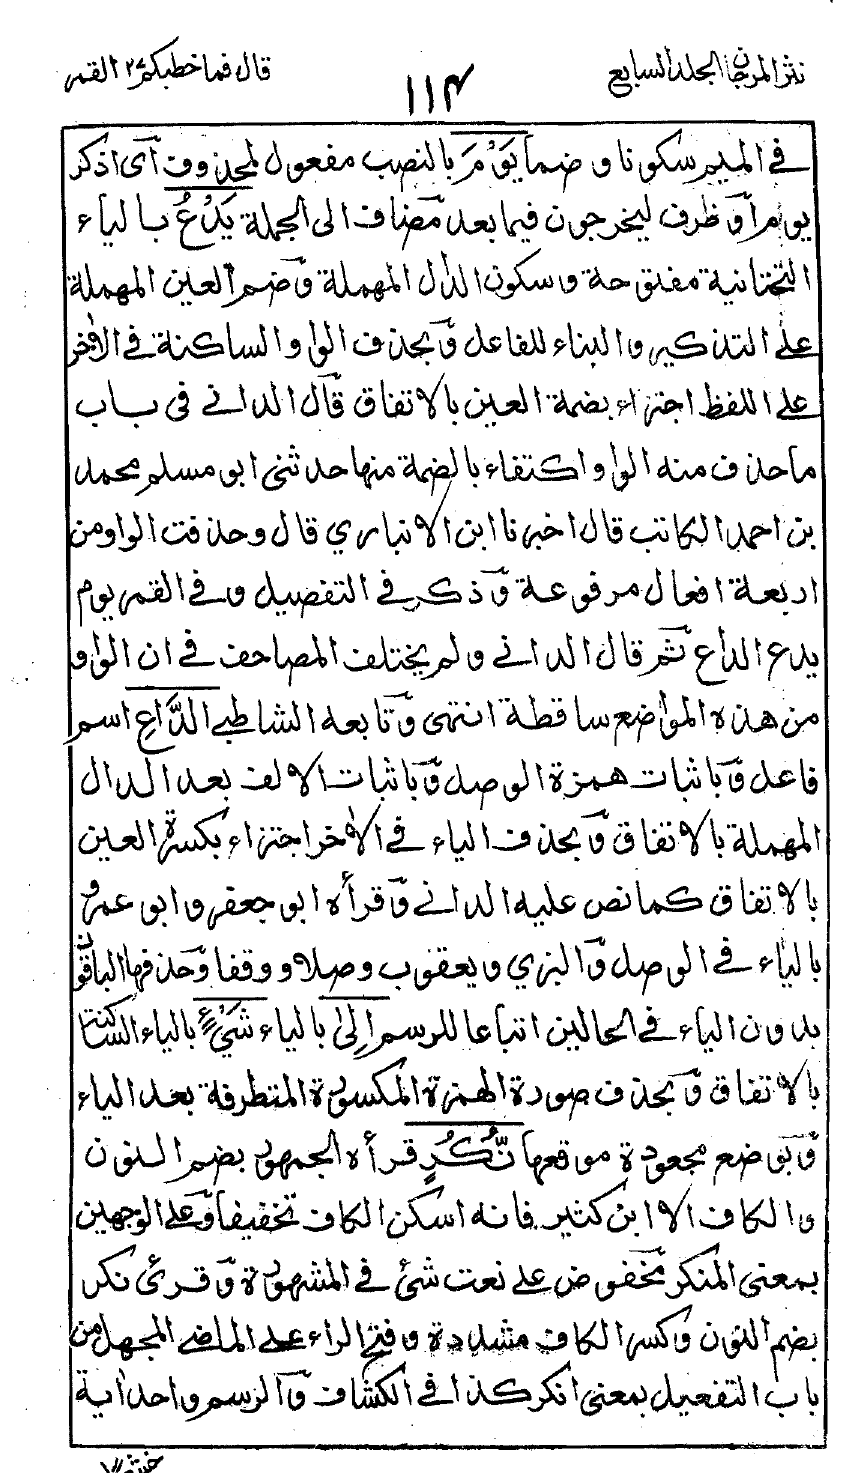 نثر المرجان المجلد السابع
١١٤
قال فما خطبكم ٢٧ القمر
في الميم سكونا وضما يَوْمَ بالنصب مفعول لمحذوف آى اذكر
يوم اوّ ظرف ليخرجون فيما بعد مّضاف الى الجملة يَدْعُ بالياء
التحتانية مفتوحة وسكون الدال المهملة وّضم العين المهملة
على التذكير والبناء للفاعل وّبحذف الواو الساكنة في الاٰخر
على اللفظ اجتزاء بضمة العين بالاتفاق قآل الداني في باب
ما حذف منه الواو اكتفاء بالضمة منها حدثنى ابو مسلم محمد
بن احمد الكاتب قال اخبرنا ابن الانباري قال وحذفت الواو من
اربعة افعال مرفوعة وّذكر في التفصيل وفي القمر يوم
يدع الداع ثمّ قال الداني ولم يختلف المصاحف في ان الواو
من هذه المواضع ساقطة انتهى وّتابعه الشاطبي الدَّاعِ اسم
فاعل وّباثبات همزة الوصل وّباثبات الالف بعد الدال
المهملة بالاتفاق وّبحذف الياء في الاٰخر اجتزاء بكسرة العين
بالاتفاق كما نص عليه الداني وّقرأه ابو جعفر وابو عمرو
بالياء في الوصل وّالبزي ويعقوب وصلا ووقفا وّحذفها الباقون
بدون الياء في الحالين اتباعا للرسم اِلىٰ بالياء شَيْءٍ بالياء الساكنة
بالاتفاق وّبحذف صورة الهمزة المكسورة المتطرفة بعد الياء
وّبوضع مجعودة موقعها نُّكُرٍ قرأه الجمهور بضم النون
والكاف الا ابن كثير فانه اسكن الكاف تخفيفا وّعلى الوجهين
بمعنى المنكر مّخفوض على نعت شئ في المشهورة وّقرئ نكر
بضم النون وكسر الكاف مشددة وفتح الراء على الماضي المجهل من
باب التفعيل بمعنى انكر كذا في الكشاف وّالرسم واحد اٰية